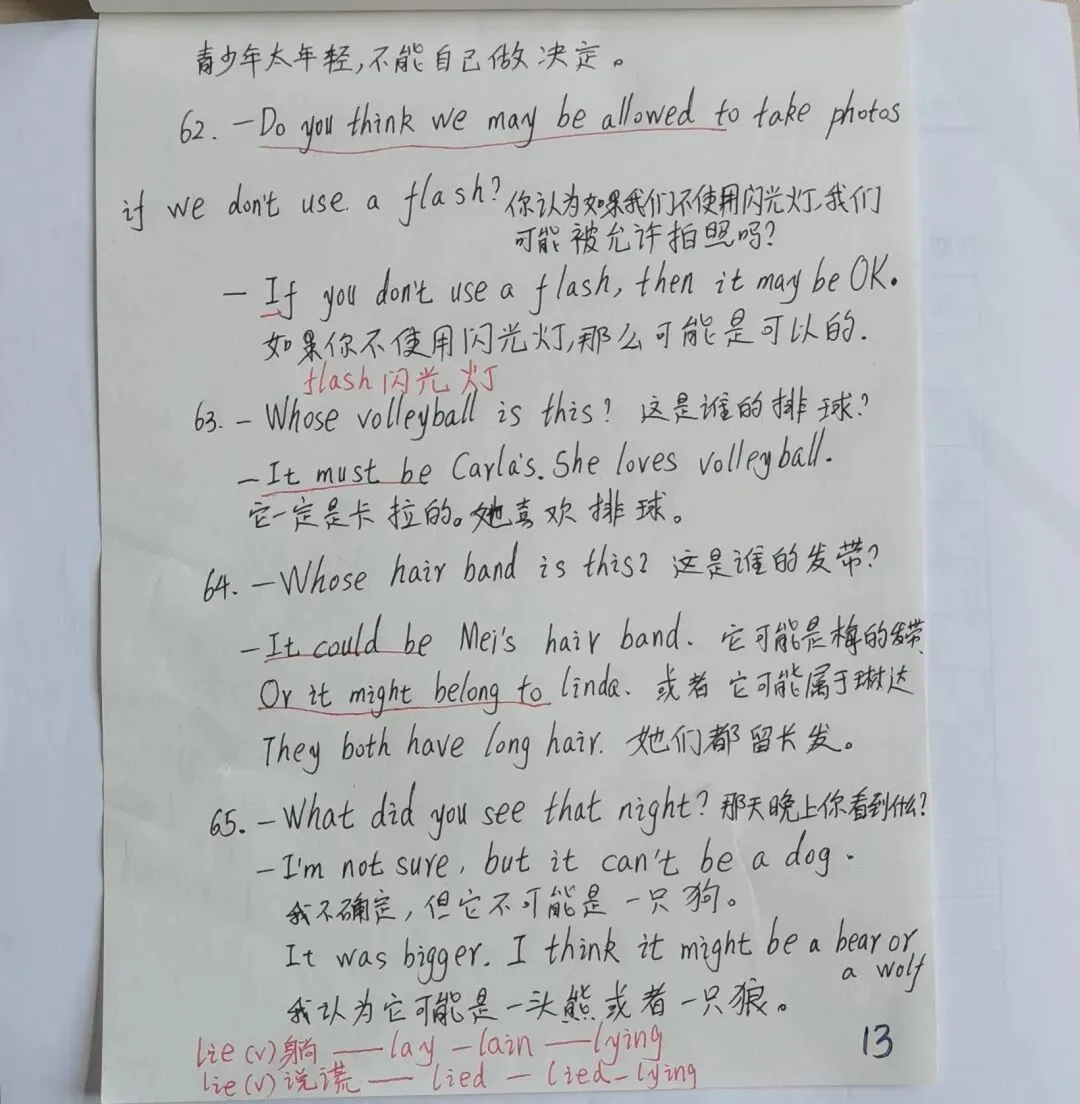 青少年太年轻,不能自己做决定。
62. — Do you think we may be allowed to take photos
if we don't use a flash? 你认为如果我们不使用闪光灯,我们
可能被允许拍照吗?
— If you don't use a flash, then it may be OK.
如果你不使用闪光灯,那么可能是可以的.
flash 闪光灯
63. — Whose volleyball is this? 这是谁的排球?
— It must be Carla's. She loves volleyball.
它一定是卡拉的。她喜欢排球。
64. — Whose hair band is this? 这是谁的发带?
— It could be Mei's hair band. 它可能是梅的发带.
Or it might belong to linda. 或者它可能属于琳达
They both have long hair. 她们都留长发。
65. — What did you see that night? 那天晚上你看到什么?
— I'm not sure, but it can't be a dog.
我不确定,但它不可能是一只狗。
It was bigger. I think it might be a bear or
a wolf
我认为它可能是一头熊或者一只狼。
lie (v) 躺 — lay — lain — lying
lie (v) 说谎 — lied — lied — lying
13